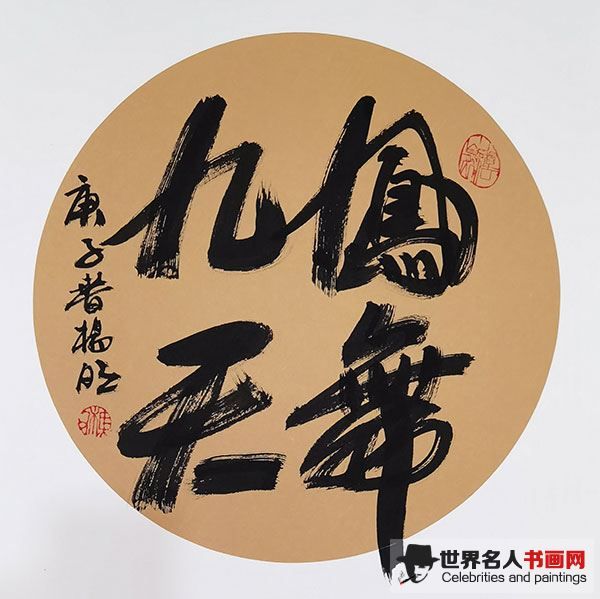 鳳舞
九天
庚子春楊明
世界名人书画网
Celebrities and paintings